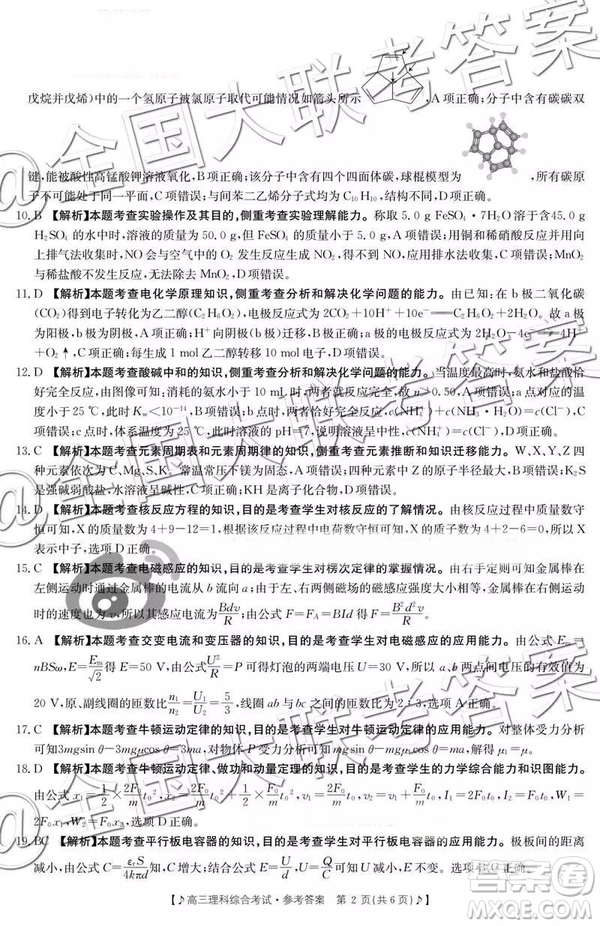 戊烷并戊烯)中的一个氢原子被氯原子取代可能情况如箭头所示 ,A项正确;分子中含有碳碳双
键,能被酸性高锰酸钾溶液氧化,B项正确;该分子中含有四个四面体碳,球棍模型为 ,所有碳
原子不可能处于同一平面,C项错误;与间苯二乙烯分子式均为C10H10,结构不同,D项正确。
10. B 【解析】本题考查实验操作及其目的,侧重考查实验理解能力。称取5.0 g FeSO4·7H2O溶于含45.0 g
H2SO4的水中时,溶液的质量为50.0 g,但FeSO4的质量小于5.0 g,A项错误;用铜和稀硝酸反应并用向
上排气法收集时,NO会与空气中的O2发生反应生成NO2,应用排水法收集,C项错误;
与稀盐酸不发生反应,无法除去,D项错误。
11. D 【解析】本题考查电化学原理知识,侧重考查分析和解决化学问题的能力。由已知:在b极二氧化碳
(CO2)得电子变为乙二醇,可得b极的电极反应方程式为2CO2+10H++10e- ,故a极
为阳极,b极为阴极,A项正确;H+向阴极移动,B项正确;a极的电极反应式为2H2O-4e- 4H+
+O2↑,C项正确;每生成1 mol乙二醇转移10 mol电子,D项错误。
12. D 【解析】本题考查酸碱中和的知识,侧重考查分析和解决化学问题的能力。当温度最高时,氨水和盐酸恰
好完全反应,由图像可知:消耗的氨水小于10 mL时,两者就反应完全,故n>0.50,A项正确;a点对应的温
度小于25 ℃,此时Kw<10-14,B项正确;b点时,两者恰好完全反应,c(NH4+)+c(NH3·H2O)=c(Cl-),
C项正确;25 ℃时,此时溶液的pH=7,说明溶液呈中性,c(NH4+)=c(Cl-),D项错误。
13. C 【解析】本题考查元素周期表和元素周期律的知识,侧重考查元素推断和知识迁移能力。W、X、Y、Z四
种元素依次为C、Mg、S、K。常温常压下镁为固态,A项错误;四种元素中Z的原子半径最大,B项错误;K2S
是强碱弱酸盐,水溶液呈碱性,C项正确;KH是离子化合物,D项错误。
14. D 【解析】本题考查核反应方程的知识,目的是考查学生对核反应的了解情况。由核反应过程中质量数守
恒可知,X的质量数为4+9-12=1,根据核反应过程中电荷数守恒可知,X的质子数为4+2-6=0,所以X
表示中子,选项D正确。
15. C 【解析】本题考查电磁感应的知识,目的是考查学生对楞次定律的掌握情况。由右手定则可知金属棒在
左侧运动时通过金属棒上的电流从b流向a;由于两侧磁场的磁感应强度大小相等,金属棒经过两侧磁场运
动时的速度为v,所以其感应电流为Bdv/R;由公式F=FA=BId得F=B²d²v/R。
16. A 【解析】本题考查交变电流和变压器的知识,目的是考查学生对电磁感应的应用能力。由公式Em=
nBSω,E=Em/√2得E=50 V,由公式U²/R=P可得灯泡的两端电压U=30 V,所以a、b两点之间的电压为
20 V,原、副线圈的匝数比n1/n2=U1/U2=5/3,线圈ab与bc之间的匝数比为2∶3,选项A正确。
17. C 【解析】本题考查牛顿运动定律的知识,目的是考查学生对牛顿运动定律的应用能力。对整体受力分析
可知3mgsin θ-3mgμcos θ=3ma,对物体P受力分析可得mgsin θ-μ1mgcos θ=ma,解得μ1=μ。
18. D 【解析】本题考查牛顿运动定律、做功和动量定理的知识,目的是考查学生的力学综合能力和识图能力。
由公式x1=1/2×2F0/m t0²,x2=2F0/m t0²+1/2×F0/m t0²,v1=2F0/m t0,v2=3F0/m t0,I1=2F0t0,I2=F0t0,W1=
2F0x1,W2=F0x2,选项D正确。
19. BC 【解析】本题考查平行板电容器的知识,目的是考查学生对平行板电容器的应用能力。极板间的距离
减小,由公式C=εrS/4πkd可知电容变大,由公式E=U/d,U=Q/C可知E不变,选项B、C正确。
【♪高三理科综合考试·参考答案 第2页(共6页)♪】
@全国大联考答案
答案圈
MXQE.COM